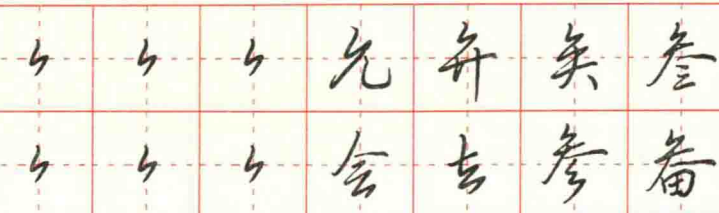 厶 厶 厶 允 弁 矣 叁
厶 厶 厶 会 去 参 畚